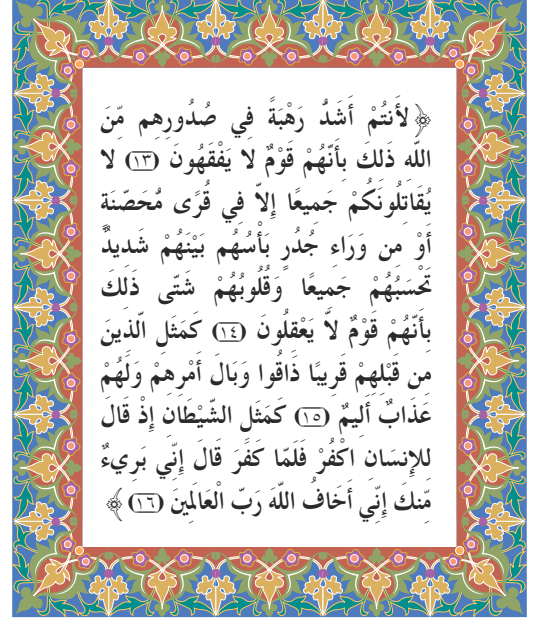 ﴿لأَنتُمْ أَشَدُّ رَهْبَةً فِي صُدُورِهِم مِّنَ
اللَّهِ ذَلِكَ بِأَنَّهُمْ قَوْمٌ لا يَفْقَهُونَ (١٣) لا
يُقَاتِلُونَكُمْ جَمِيعًا إِلاَّ فِي قُرًى مُّحَصَّنَةٍ
أَوْ مِن وَرَاءِ جُدُرٍ بَأْسُهُم بَيْنَهُمْ شَدِيدٌ
تَحْسَبُهُمْ جَمِيعًا وَقُلُوبُهُمْ شَتَّى ذَلِكَ
بِأَنَّهُمْ قَوْمٌ لاَّ يَعْقِلُونَ (١٤) كَمَثَلِ الَّذِينَ
مِن قَبْلِهِمْ قَرِيبًا ذَاقُوا وَبَالَ أَمْرِهِمْ وَلَهُمْ
عَذَابٌ أَلِيمٌ (١٥) كَمَثَلِ الشَّيْطَانِ إِذْ قَالَ
لِلإِنسَانِ اكْفُرْ فَلَمَّا كَفَرَ قَالَ إِنِّي بَرِيءٌ
مِّنكَ إِنِّي أَخَافُ اللَّهَ رَبَّ الْعَالَمِينَ (١٦)﴾